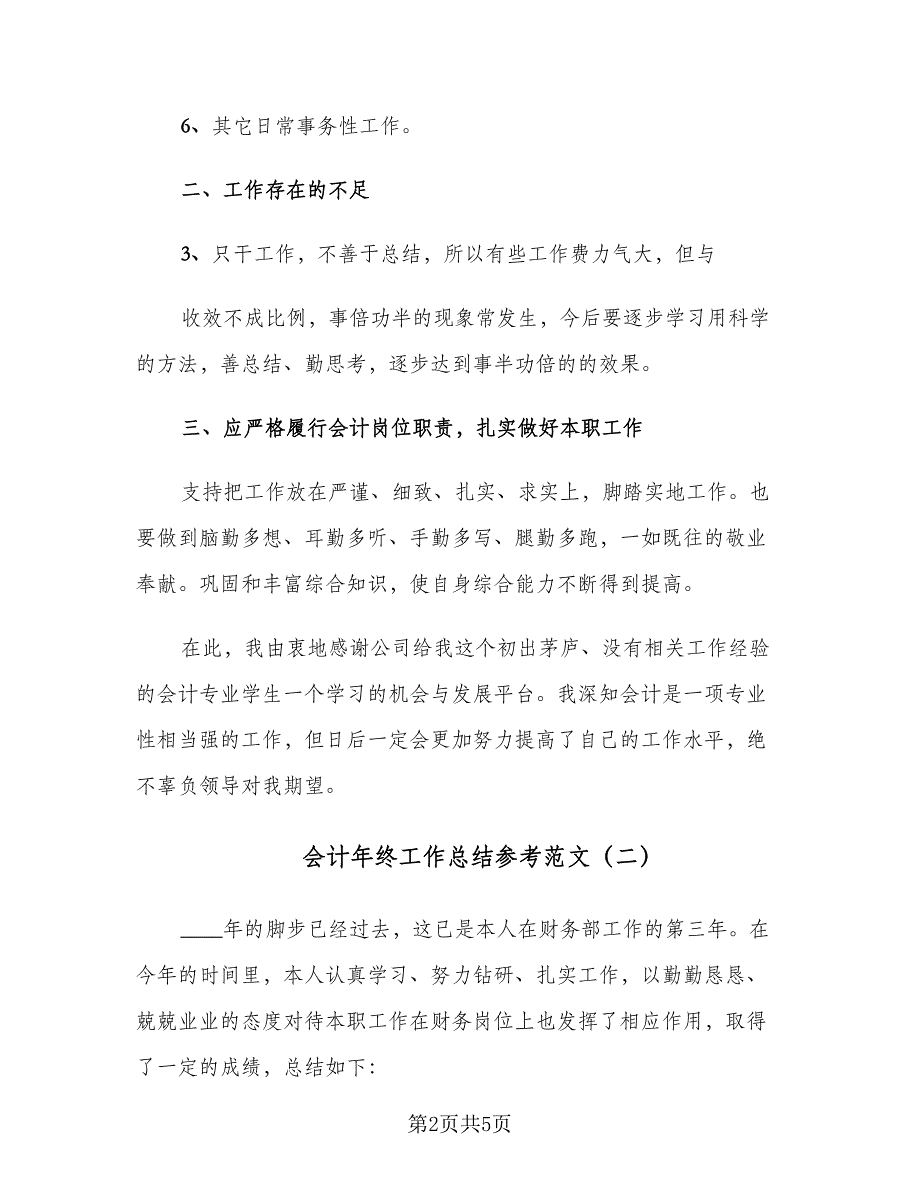 6、其它日常事务性工作。
二、工作存在的不足
3、只干工作，不善于总结，所以有些工作费力气大，但与
收效不成比例，事倍功半的现象常发生，今后要逐步学习用科学
的方法，善总结、勤思考，逐步达到事半功倍的的效果。
三、应严格履行会计岗位职责，扎实做好本职工作
支持把工作放在严谨、细致、扎实、求实上，脚踏实地工作。也
要做到脑勤多想、耳勤多听、手勤多写、腿勤多跑，一如既往的敬业
奉献。巩固和丰富综合知识，使自身综合能力不断得到提高。
在此，我由衷地感谢公司给我这个初出茅庐、没有相关工作经验
的会计专业学生一个学习的机会与发展平台。我深知会计是一项专业
性相当强的工作，但日后一定会更加努力提高了自己的工作水平，绝
不辜负领导对我期望。
会计年终工作总结参考范文（二）
____年的脚步已经过去，这已是本人在财务部工作的第三年。在
今年的时间里，本人认真学习、努力钻研、扎实工作，以勤勤恳恳、
兢兢业业的态度对待本职工作在财务岗位上也发挥了相应作用，取得
了一定的成绩，总结如下：
第2页共5页